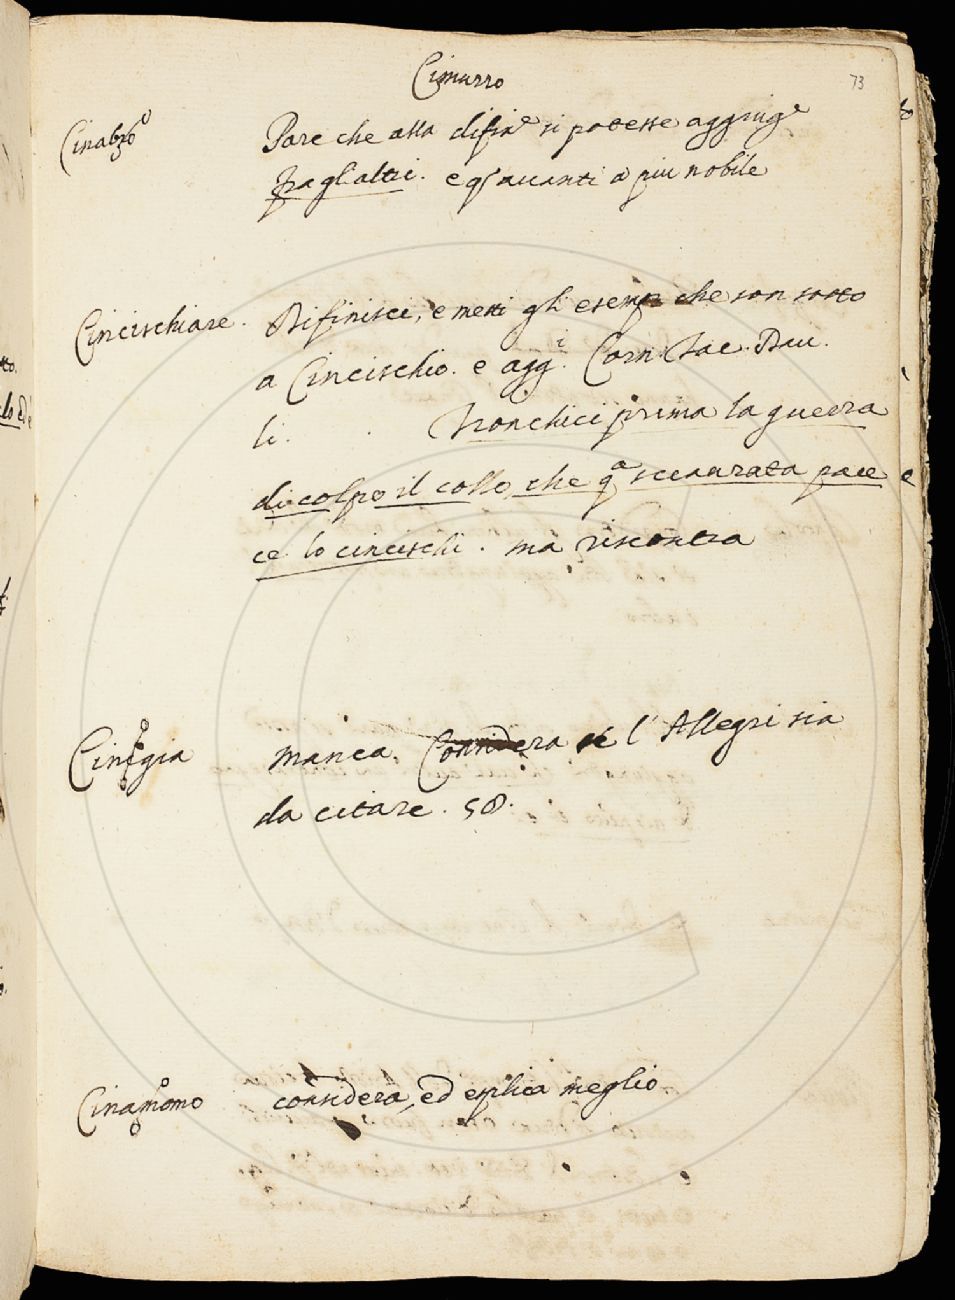 Cimurro
73
Cinabro
Pare che alla difin.e si potesse aggiug.e
fra gl'altri. e q.sto avanti a piu nobile
Cincischiare.
Rifinisci, e metti gli esempi che son sotto
a Cincischio. e agg.i Corn. Tac. Dav.
li. Tronchici prima la guerra
di colpo il collo, che q.a sciaurata pace
ce lo cincischi. ma riscontra
Cinegia
manca. Considera se l'Allegri sia
da citare. 58.
Cinamomo
considera, ed esplica meglio